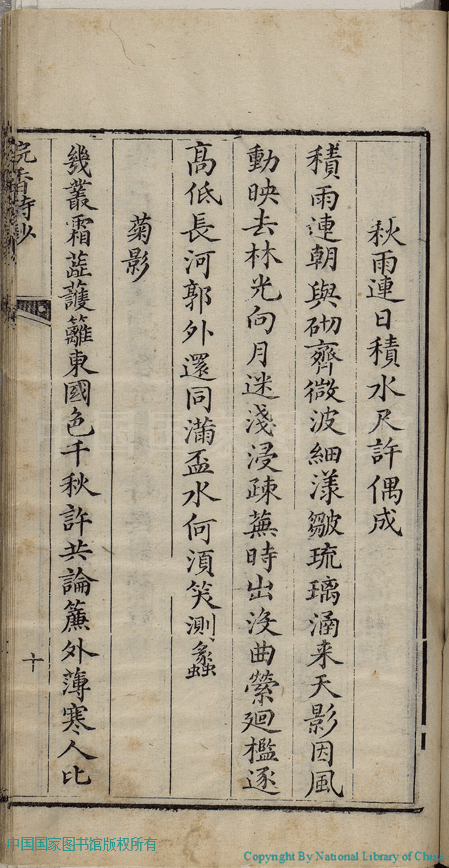 秋雨連日積水尺許偶成
積雨連朝與砌齊微波細漾皺琉璃涵来天影因風
動映去林光向月迷淺浸疎蕪時出沒曲縈廻檻逐
高低長河郭外還同滿盃水何湏笑測蠡
菊影
幾叢霜蕋護籬東國色千秋許共論簾外薄寒人比
浣香詩鈔
十
中国国家图书馆版权所有
Copyright By National Library of China